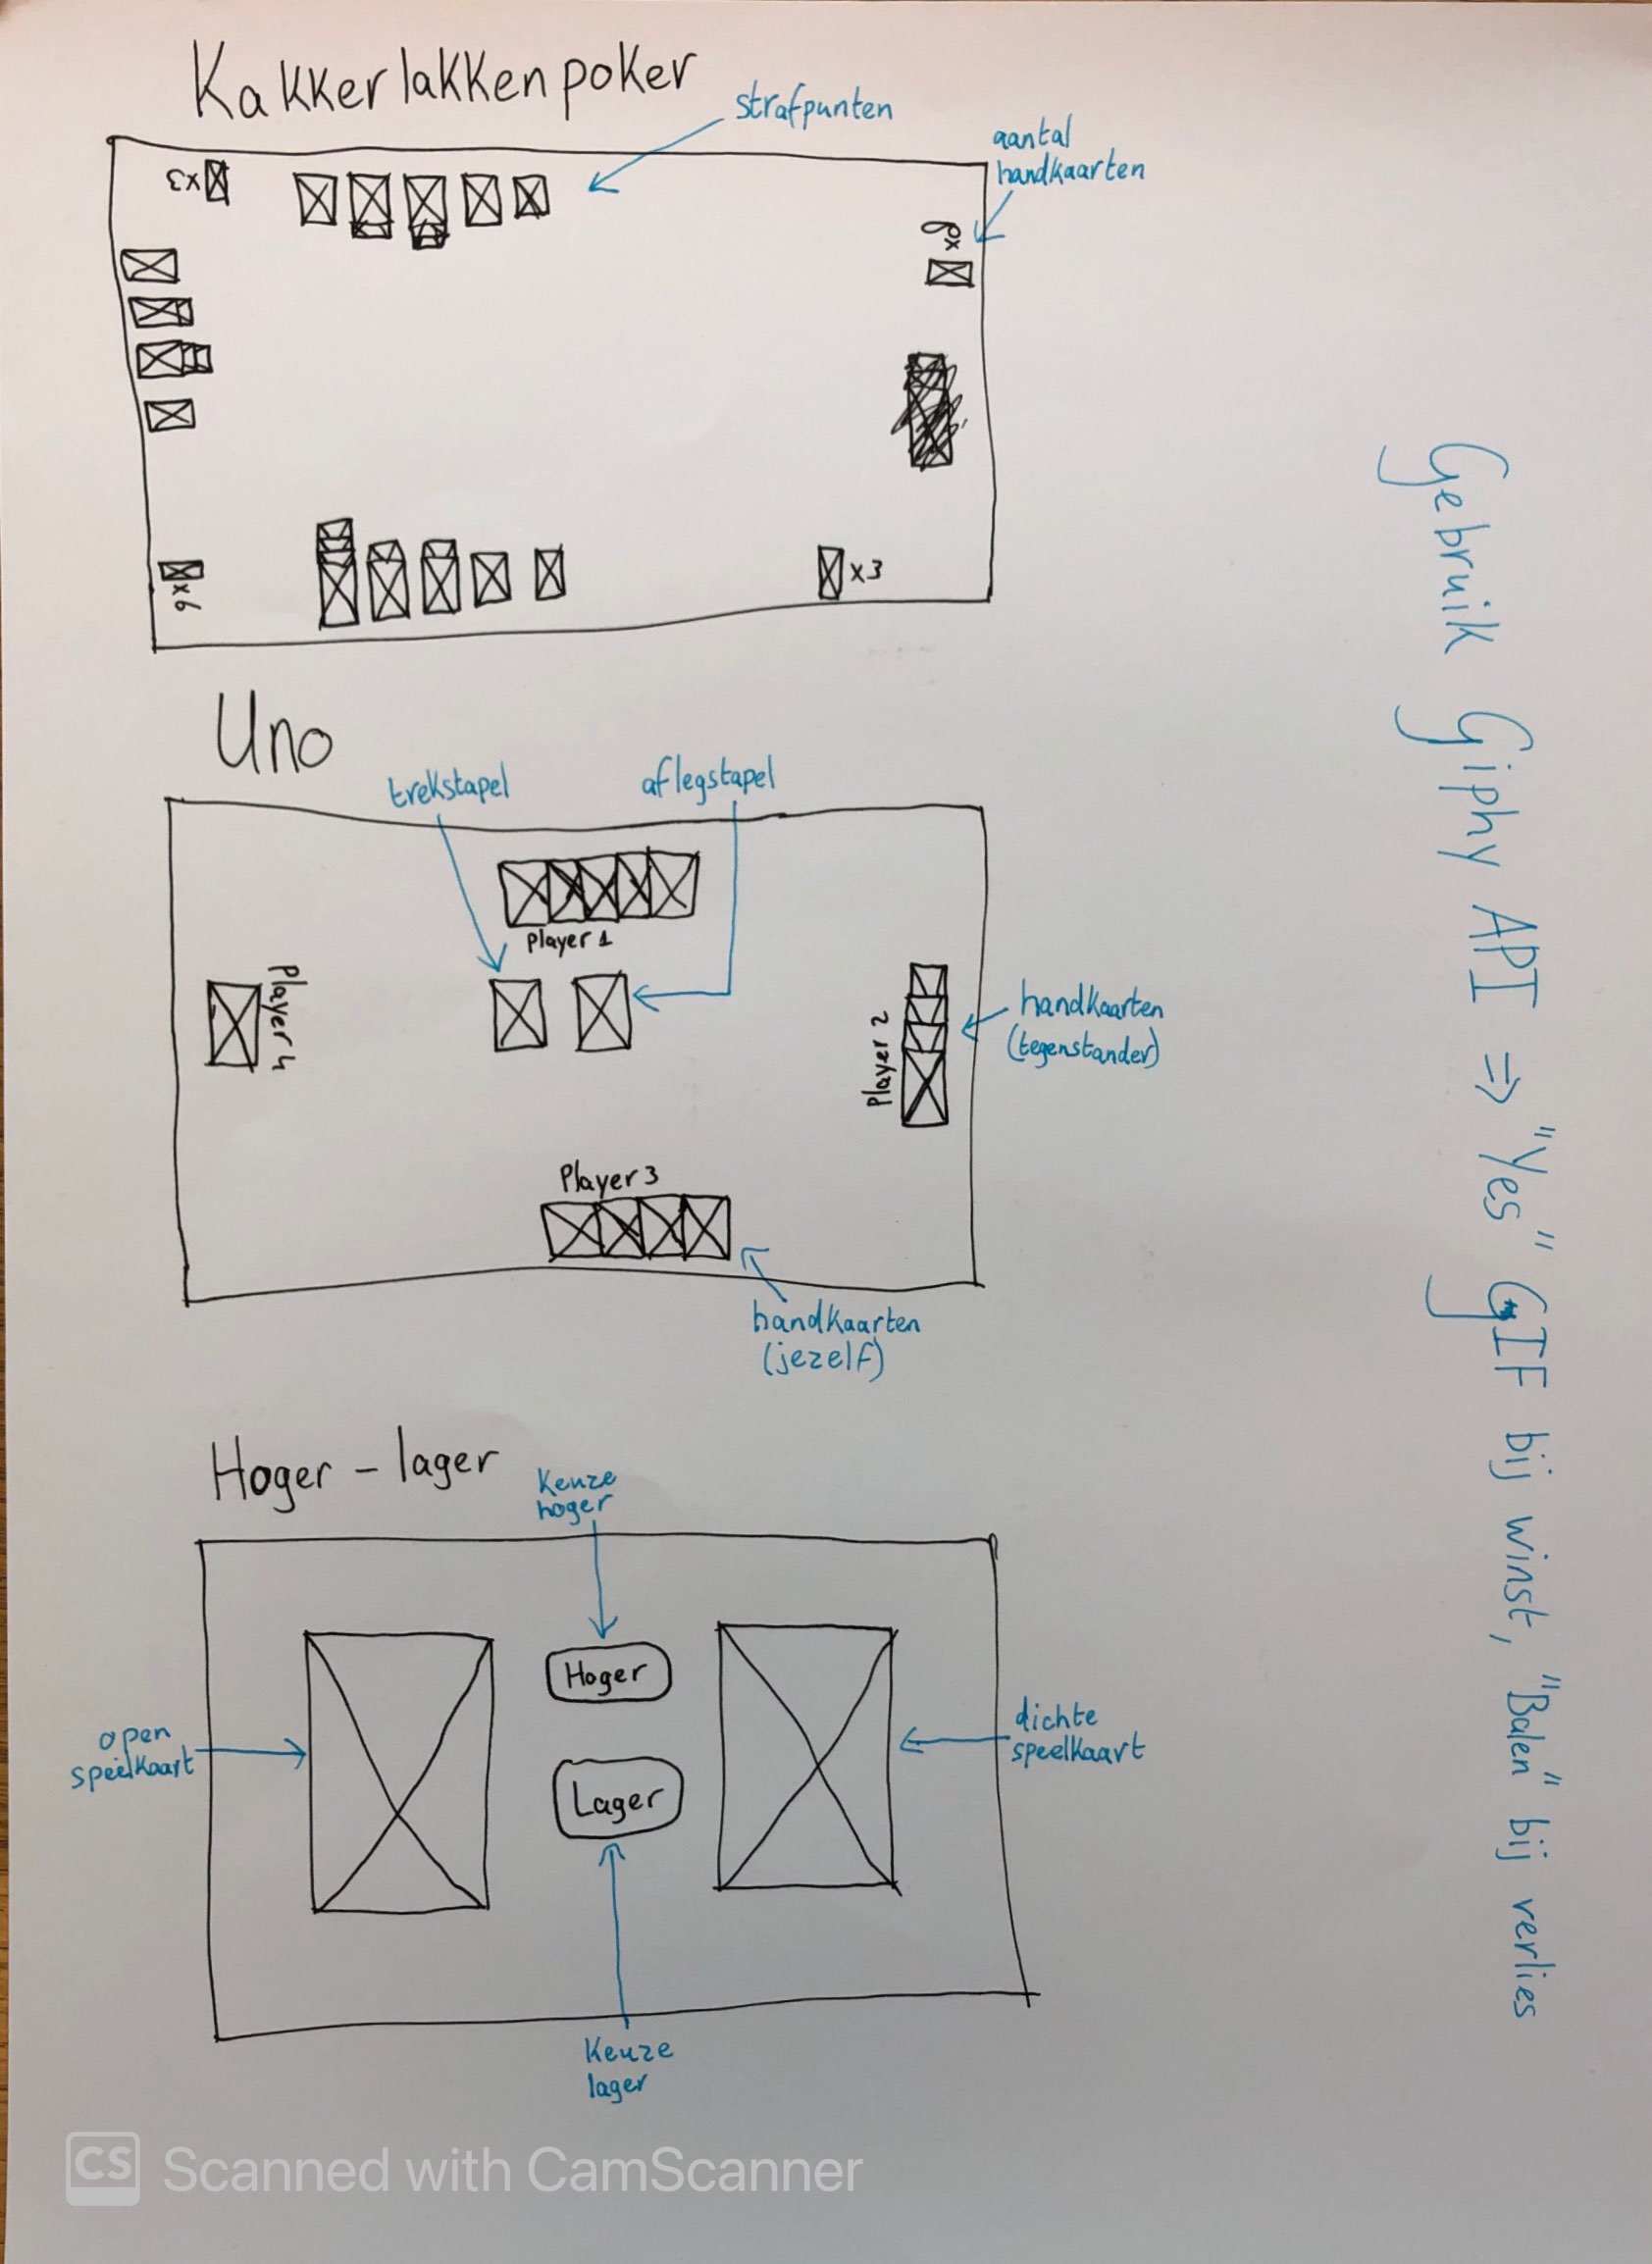 Kakkerlakkenpoker
strafpunten
aantal
handkaarten
x3
x6
x3
Uno
trekstapel
aflegstapel
Player 1
Player 4
Player 2
handkaarten
(tegenstander)
Player 3
handkaarten
(jezelf)
Hoger - lager
Keuze
hoger
Hoger
open
speelkaart
dichte
speelkaart
Lager
Keuze
lager
Gebruik Giphy API => "Yes" GIF bij winst, "Balen" bij verlies
CS Scanned with CamScanner